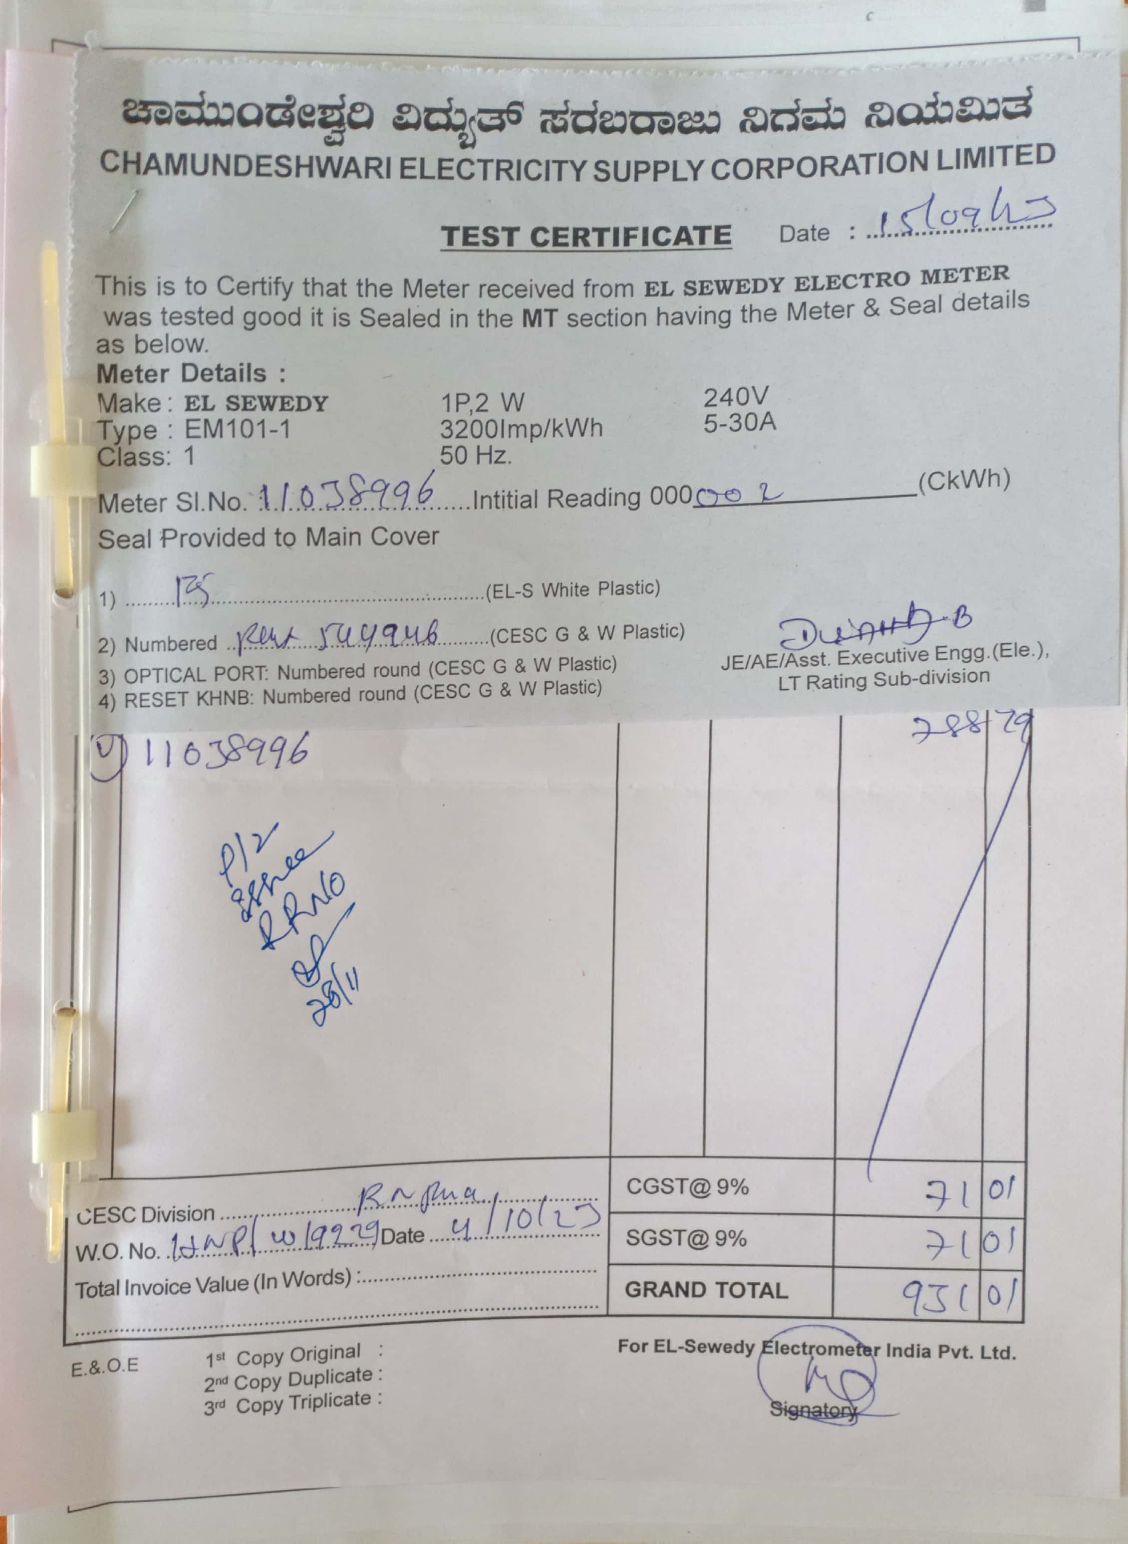 ಚಾಮುಂಡೇಶ್ವರಿ ವಿದ್ಯುತ್ ಸರಬರಾಜು ನಿಗಮ ನಿಯಮಿತ
CHAMUNDESHWARI ELECTRICITY SUPPLY CORPORATION LIMITED
TEST CERTIFICATE Date : 15/09/23
This is to Certify that the Meter received from EL SEWEDY ELECTRO METER
was tested good it is Sealed in the MT section having the Meter & Seal details
as below.
Meter Details :
Make : EL SEWEDY 1P,2 W 240V
Type : EM101-1 3200Imp/kWh 5-30A
Class: 1 50 Hz.
Meter Sl.No. 11038996 Intitial Reading 000002 (CkWh)
Seal Provided to Main Cover
1) (EL-S White Plastic)
2) Numbered (CESC G & W Plastic)
3) OPTICAL PORT: Numbered round (CESC G & W Plastic)
4) RESET KHNB: Numbered round (CESC G & W Plastic)
JE/AE/Asst. Executive Engg.(Ele.),
LT Rating Sub-division
788 79
11038996
P/2
issue
RRNO
28/11
CGST@ 9% 71 01
CESC Division
SGST@ 9% 71 01
W.O. No. HNP/W/9229 Date 4/10/23
Total Invoice Value (In Words) :
GRAND TOTAL 931 01
E.&.O.E
1st Copy Original :
2nd Copy Duplicate :
3rd Copy Triplicate :
For EL-Sewedy Electrometer India Pvt. Ltd.
Signatory